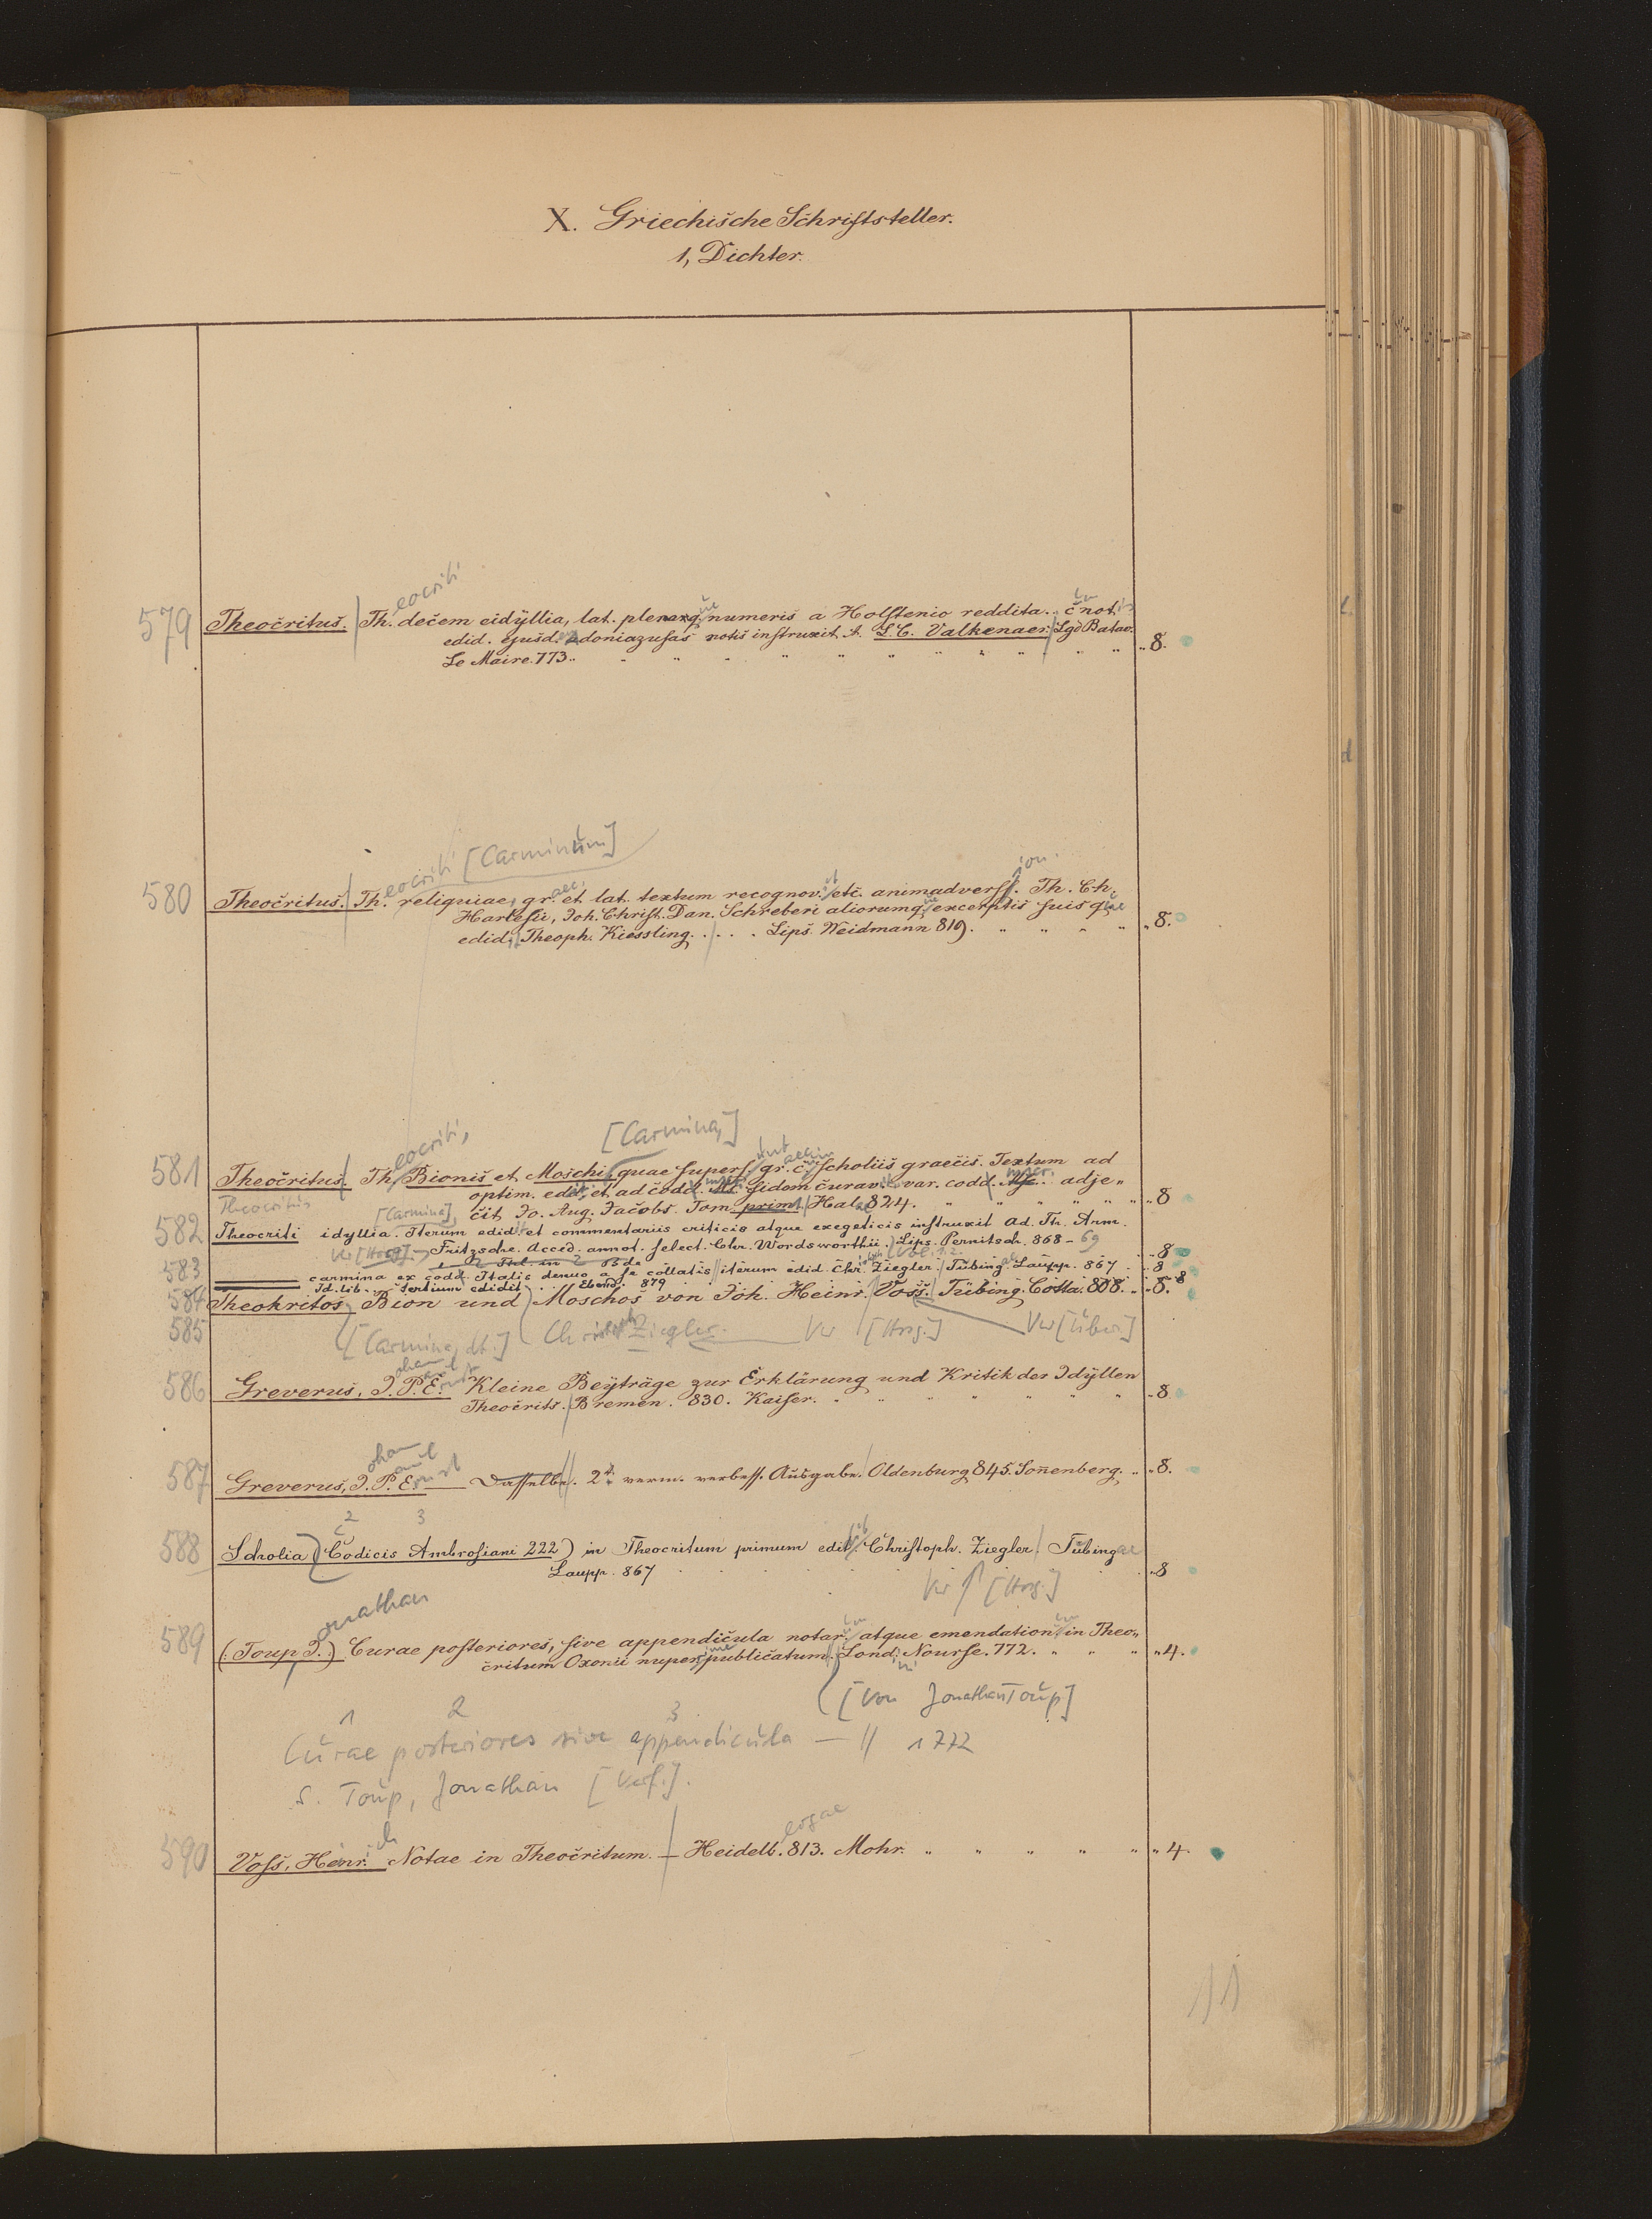 X. Griechische Schriftsteller.
1, Dichter.
eocriti
579 Theocritus. Th. decem eidyllia, lat. pleraq. numeris a Holstenio reddita. c. not.
edid. ejusd. adoniazusas notis instruxit A. L. C. Valkenaer. Lgd Batav.
Le Maire. 773. 8.
eocriti [Carminum]
580 Theocritus. Th. reliquiae, gr. et lat. textum recognov. etc. animadverss. Th. Ch.
Harlesii, Joh. Christ. Dan. Schreberi aliorumq. excerptis suisque
edid. Theoph. Kiessling. . . . Lips. Weidmann 819. 8.
eocriti, [Carmina,]
581 Theocritus. Th. Bionis et Moschi quae supers. gr. c. scholiis graecis. Textum ad
optim. edit. et ad codd. fidem curav. var. codd. adje„
Theocritus [Carmina] cit Jo. Aug. Jacobs. Tom. prim. Halae 824. 8
582 Theocriti idyllia. Iterum edid. et commentariis criticis atque exegeticis instruxit Ad. Th. Arm.
Fritzsche. Acced. annot. select. Chr. Wordsworthii. Lips. Pernitsch. 868-69 8
583 carmina ex codd. Italis denuo a se collatis iterum edid. Chr. Ziegler. Tübing. Laupp. 867 8
Id. lib. tertium edidit. Ebend. 879 8
584 Theokritos, Bion und Moschos von Joh. Heinr. Voss. Tübing. Cotta. 808. 8.
585 [Carmina, dt.] Christoph Ziegler. Ver [Hrsg.] Ver [Über]
ohann aul
586 Greverus, J. P. Ernst Kleine Beyträge zur Erklärung und Kritik der Idyllen
Theocrits. Bremen. 830. Kaiser. 8
ohann aul
587 Greverus, J. P. Ernst Dasselbe. 2te verm. verbess. Ausgabe. Oldenburg 845. Sonnenberg. 8.
2 3
588 Scholia (Codicis Ambrosiani 222) in Theocritum primum edit. Christoph. Ziegler. Tübingae
Laupp. 867 8
Ver [Hrsg.]
onathan
589 (: Toup J.) Curae posteriores, sive appendicula notar. atque emendation. in Theo„
critum Oxonii nuperrime publicatum. Lond. Nourse. 772. 4.
[Von Jonathan Toup]
1 2 3
Curae posteriores sive appendicula — // 1772
s. Toup, Jonathan [Verf.].
590 Voss, Heinrich Notae in Theocritum. — Heidelb. 813. Mohr. 4.